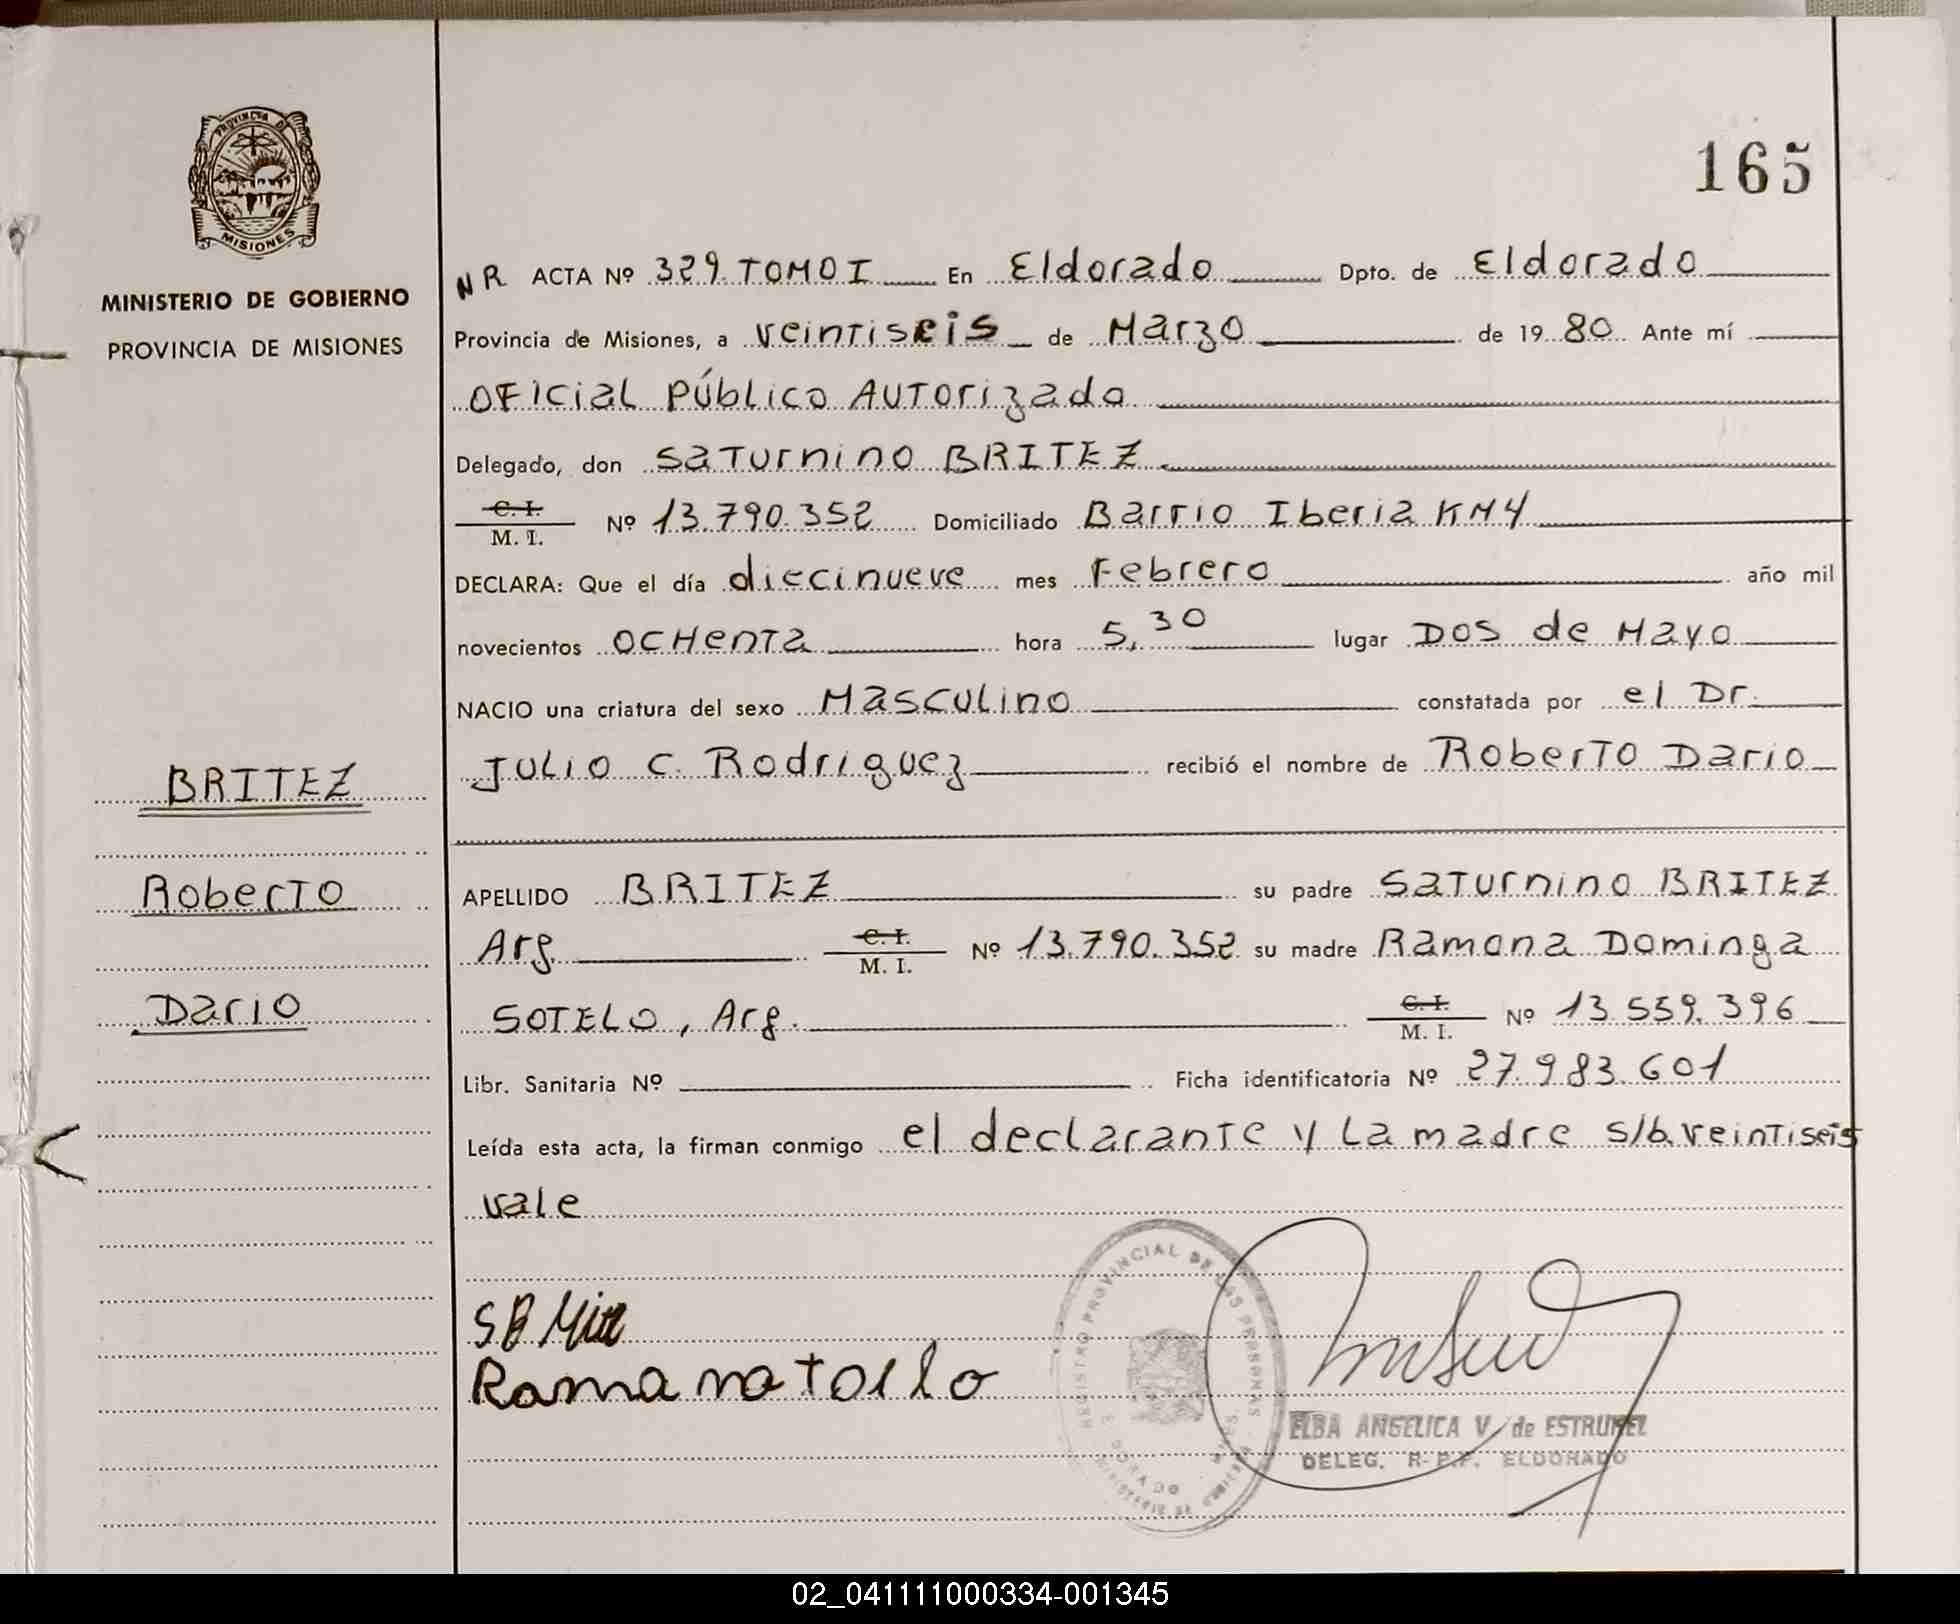 165
PROVINCIA DE
MISIONES
MINISTERIO DE GOBIERNO
PROVINCIA DE MISIONES
NR ACTA Nº 329 TOMO I En Eldorado Dpto. de Eldorado
Provincia de Misiones, a veintiseis de Marzo de 1980 Ante mí
Oficial Público Autorizado
Delegado, don Saturnino BRITEZ
C. I.
M. I. Nº 13.790.352 Domiciliado Barrio Iberia KM4
DECLARA: Que el día diecinueve mes Febrero año mil
novecientos ochenta hora 5,30 lugar Dos de Mayo
NACIO una criatura del sexo Masculino constatada por el Dr.
Julio C. Rodriguez recibió el nombre de Roberto Dario
BRITEZ
Roberto
Dario
APELLIDO BRITEZ su padre Saturnino BRITEZ
Arg. C. I.
M. I. Nº 13.790.352 su madre Ramona Dominga
SOTELO, Arg. C. I.
M. I. Nº 13.559.396
Libr. Sanitaria Nº Ficha identificatoria Nº 27.983.601
Leída esta acta, la firman conmigo el declarante y la madre s/b.veintiseis
vale
REGISTRO PROVINCIAL DE LAS PERSONAS
ELBA ANGELICA V. de ESTRUMEL
DELEG. R. P. P. ELDORADO
02_041111000334-001345